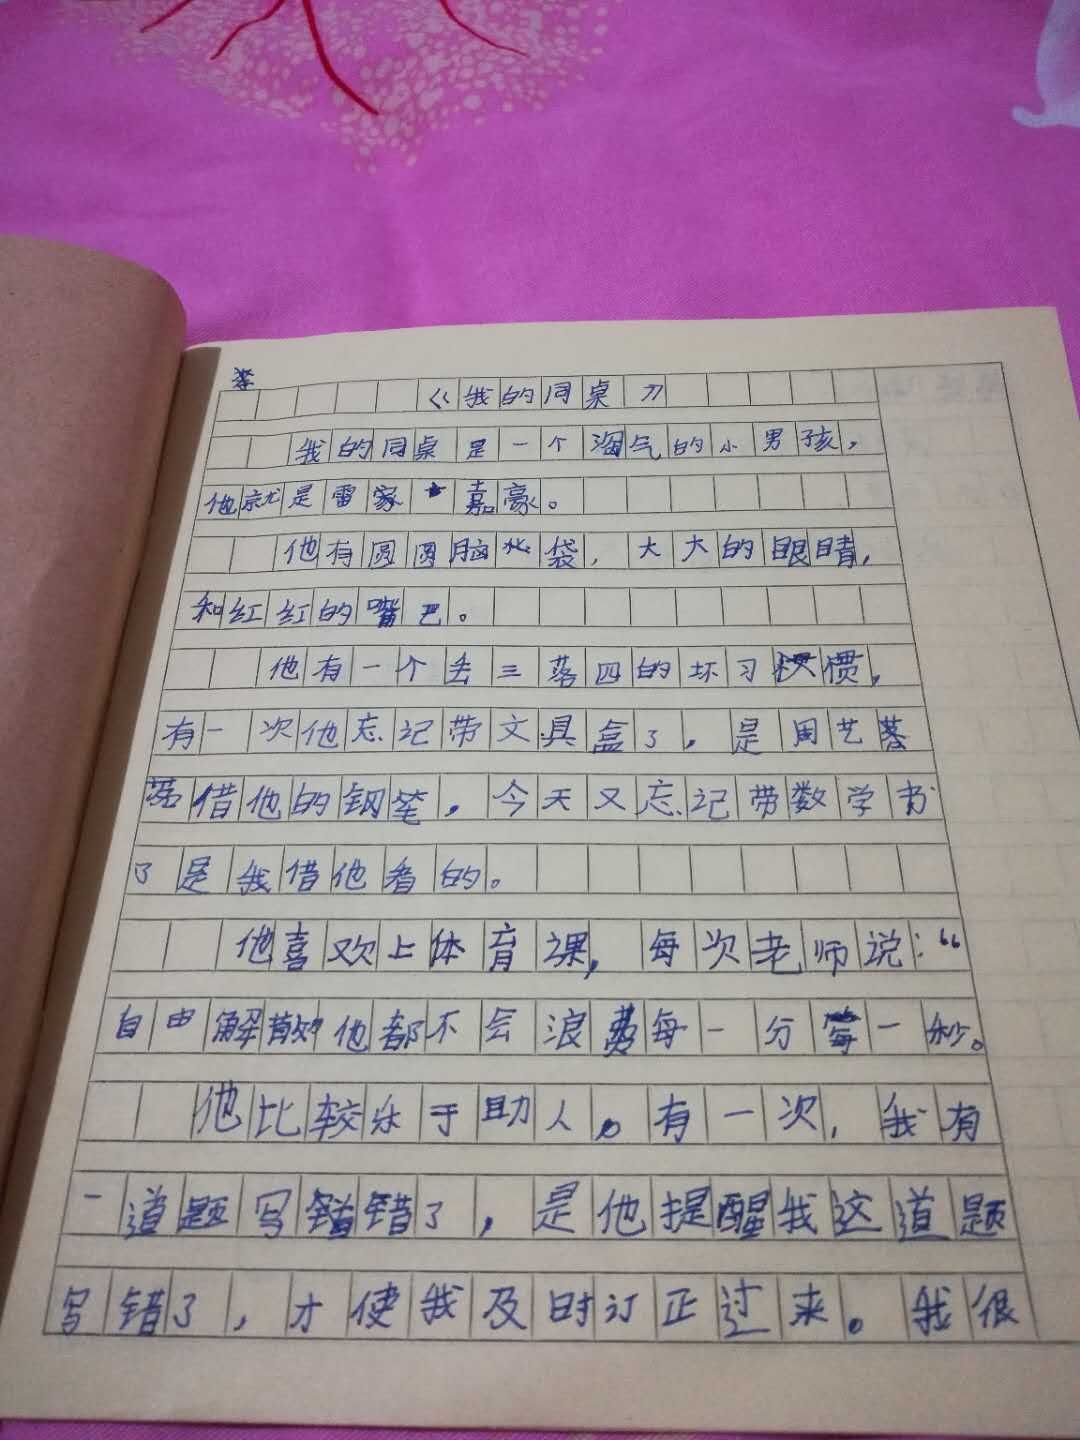 《我的同桌》
我的同桌是一个淘气的小男孩，
他就是雷家嘉豪。
他有圆圆脑袋，大大的眼睛，
和红红的嘴巴。
他有一个丢三落四的坏习惯，
有一次他忘记带文具盒了，是周艺
借他的钢笔，今天又忘记带数学书
了是我借他看的。
他喜欢上体育课，每次老师说：“
自由解散他都不会浪费每一分每一秒。
他比较乐于助人。有一次，我有
一道题写错了，是他提醒我这道题
写错了，才使我及时订正过来。我很